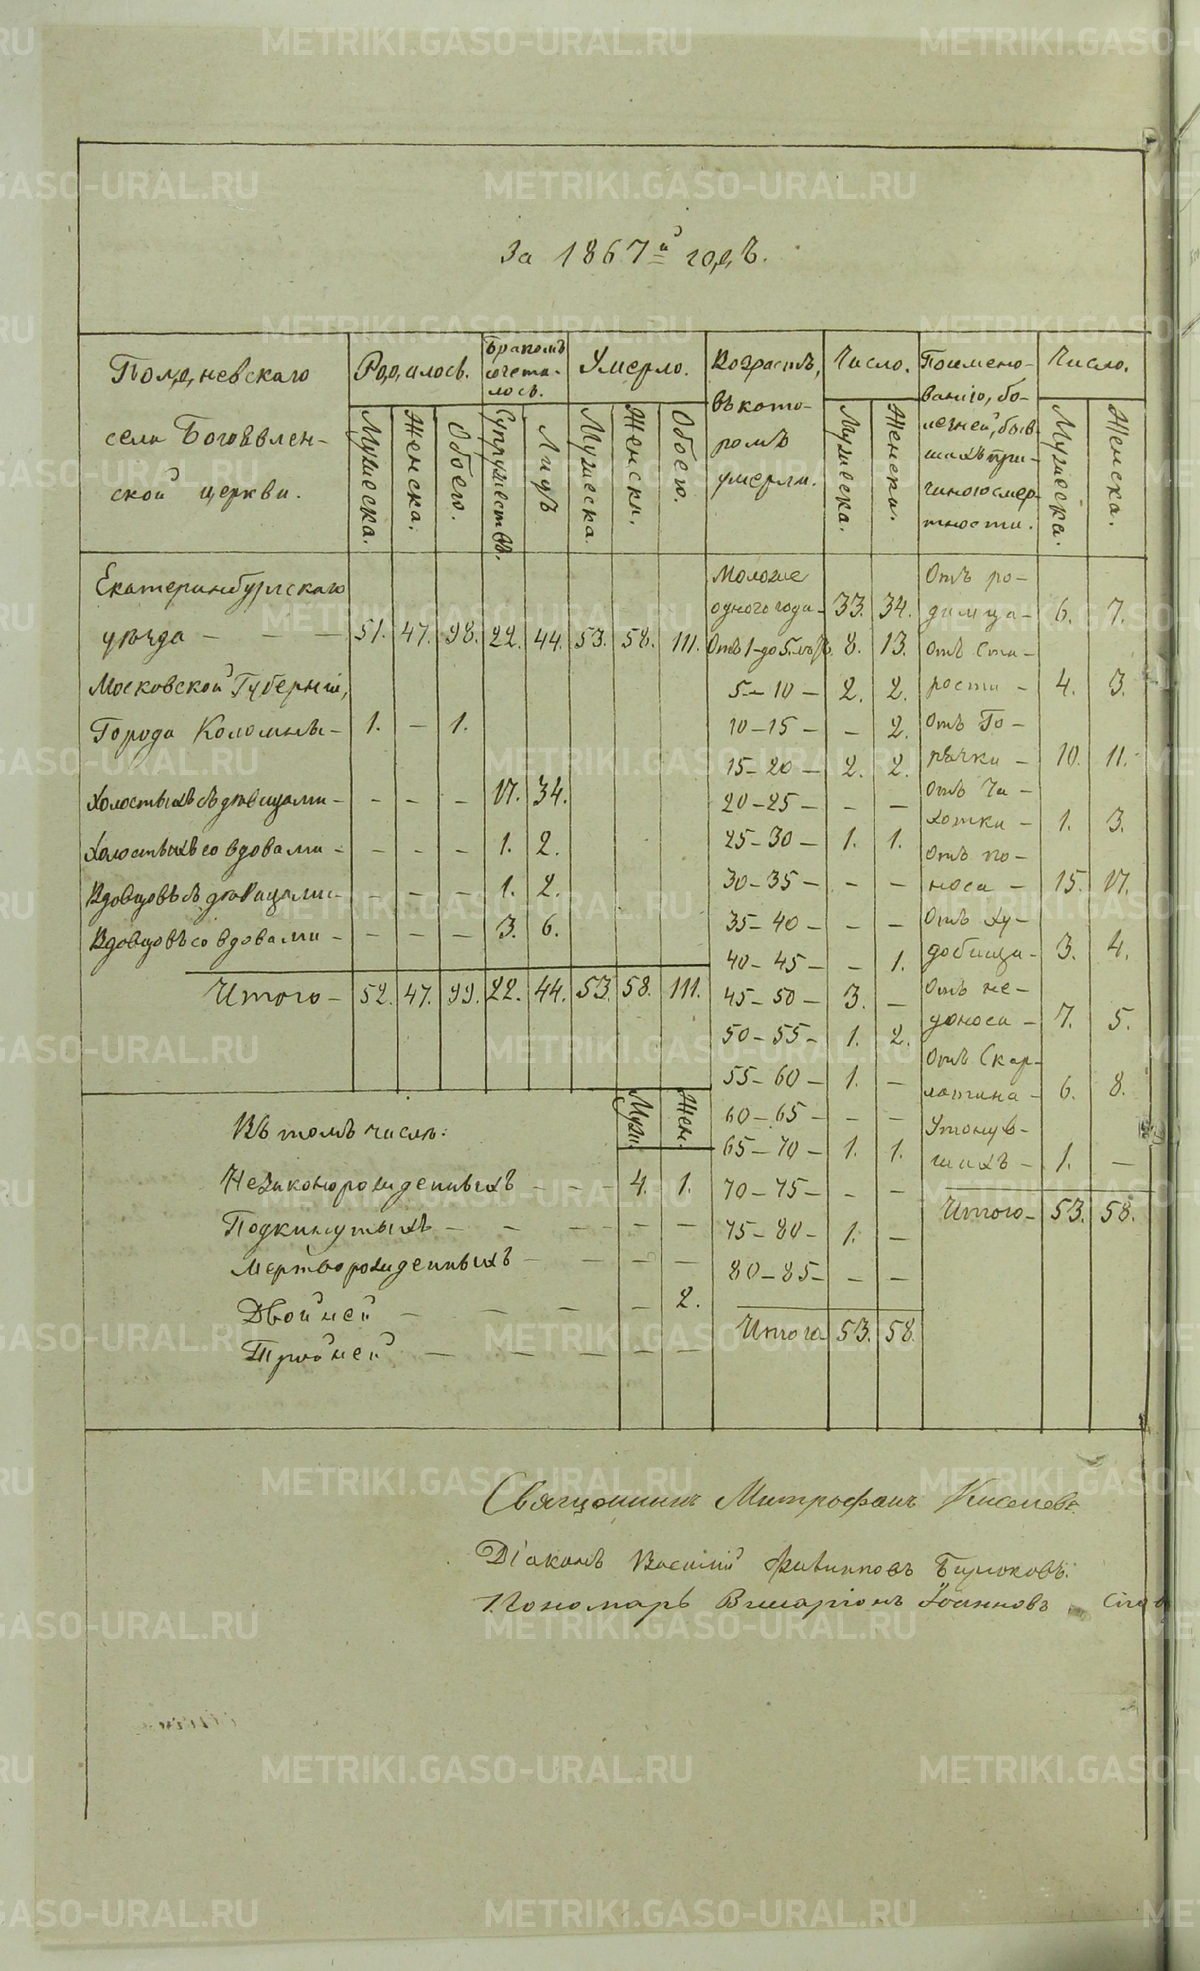 За 1867й годъ.
Полдневскаго
села Богоявлен-
ской церкви.
Родилось.
Бракомъ
сочета-
лось.
Умерло.
Возрастъ,
въ кото-
ромъ
умерли.
Число.
Поимено-
ванію, бо-
лезней, быв-
шихъ при-
чиною смер-
тности.
Число.
Мужеска.
Женска.
Обоего.
Супружествъ.
Лицъ
Мужеска.
Женска.
Обоего.
Мужеска.
Женска.
Мужеска.
Женска.
Екатеринбургскаго
уѣзда — — — 51. 47. 98. 22. 44. 53. 58. 111.
Московской Губерніи,
Города Коломны — 1. — 1.
Холостыхъ съ дѣвицами — — — — 17. 34.
Холостыхъ со вдовами — — — — 1. 2.
Вдовцовъ съ дѣвицами — — — — 1. 2.
Вдовцовъ со вдовами — — — — 3. 6.
Итого — 52. 47. 99. 22. 44. 53. 58. 111.
Муж. Жен.
Въ томъ числѣ:
Незаконорожденныхъ — — — 4. 1.
Подкинутыхъ — — — — —
Мертворожденныхъ — — — —
Двойней — — — — 2.
Тройней — — — — —
Моложе
одного года — 33. 34.
Отъ 1 до 5 лѣтъ 8. 13.
5 — 10 — 2. 2.
10 — 15 — — 2.
15 — 20 — 2. 2.
20 — 25 — — —
25 — 30 — 1. 1.
30 — 35 — — —
35 — 40 — — —
40 — 45 — — 1.
45 — 50 — 3. —
50 — 55 — 1. 2.
55 — 60 — 1. —
60 — 65 — — —
65 — 70 — 1. 1.
70 — 75 — — —
75 — 80 — 1. —
80 — 85 — — —
Итого 53. 58.
Отъ ро-
димца — 6. 7.
Отъ Ста-
рости — 4. 3.
Отъ Го-
рячки — 10. 11.
Отъ Ча-
хотки — 1. 3.
Отъ по-
носа — 15. 17.
Отъ Ху-
добища — 3. 4.
Отъ не-
доноса — 7. 5.
Отъ Скар-
латина — 6. 8.
Утонув-
шихъ — 1. —
Итого — 53. 58.
Священникъ Митрофанъ Киселевъ
Діаконъ Василій Филипповъ Бирюковъ.
Пономарь Виларіонъ Іоанновъ
METRIKI.GASO-URAL.RU